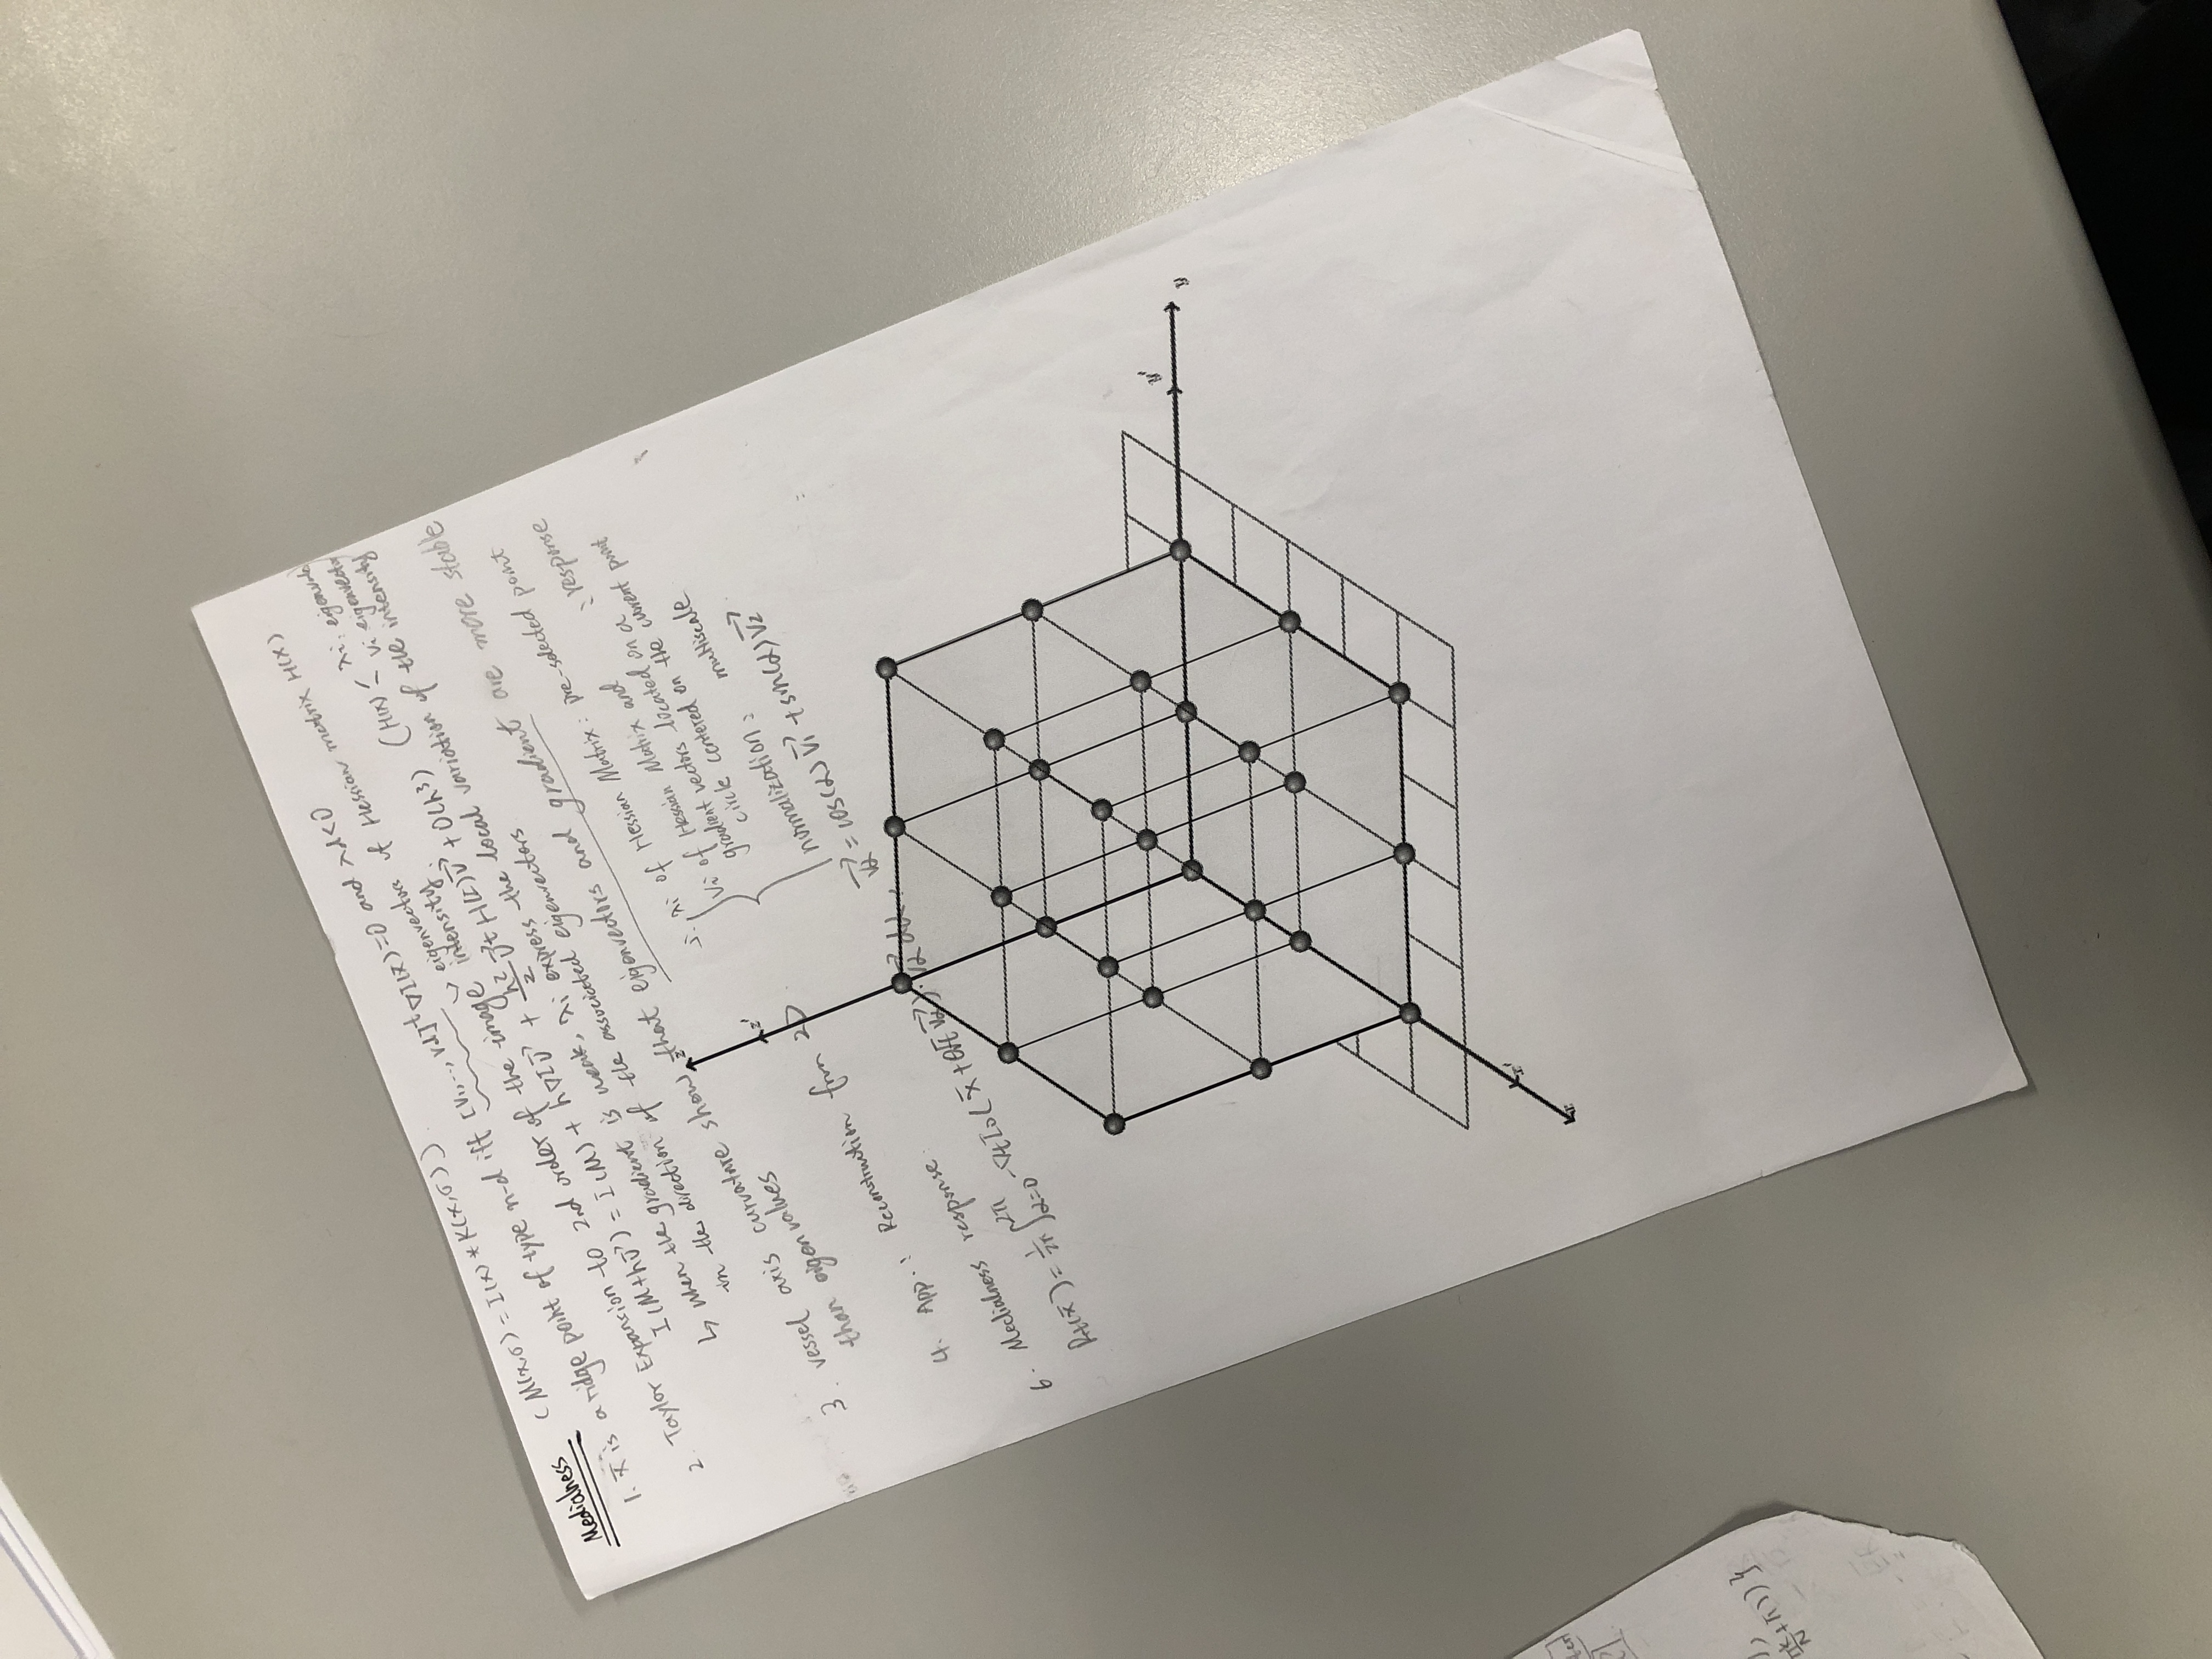 Medialness (M(x,σ) = I(x) * K(x,σ))
1. x̄ is a ridge point of type n-d iff [V1,..., Vd]^t ∇I(x̄)=0 and λd<0
↘ eigenvectors of Hessian matrix H(x)
2. Taylor Expansion to 2nd order of the image intensity.
I(M+hv⃗) = I(M) + h∇Iv⃗ + h²/2 v⃗^t H(I)v⃗ + O(h³) (H(x) < λi: eigenvalu
vi eigenvector
↳ when the gradient is weak, λi express the local variation of the intensity
in the direction of the associated eigenvectors
3. vessel axis curvature show that eigenvectors and gradient are more stable
than eigenvalues
4. App.: Reconstruction from 2D
5. λi of Hessian Matrix: pre-selected point
Vi of Hessian Matrix and
gradient vectors located on a : response
circle centered on the current point
normalization: multiscale
6. Medialness response:
Rt(x̄) = 1/2π ∫_{α=0}^{2π} -∇tIσ(x̄ + θ√t v⃗α)·v⃗α dα, v⃗α = cos(α)v⃗1 + sin(α)v⃗2
z
z'
y'
y
x'
x